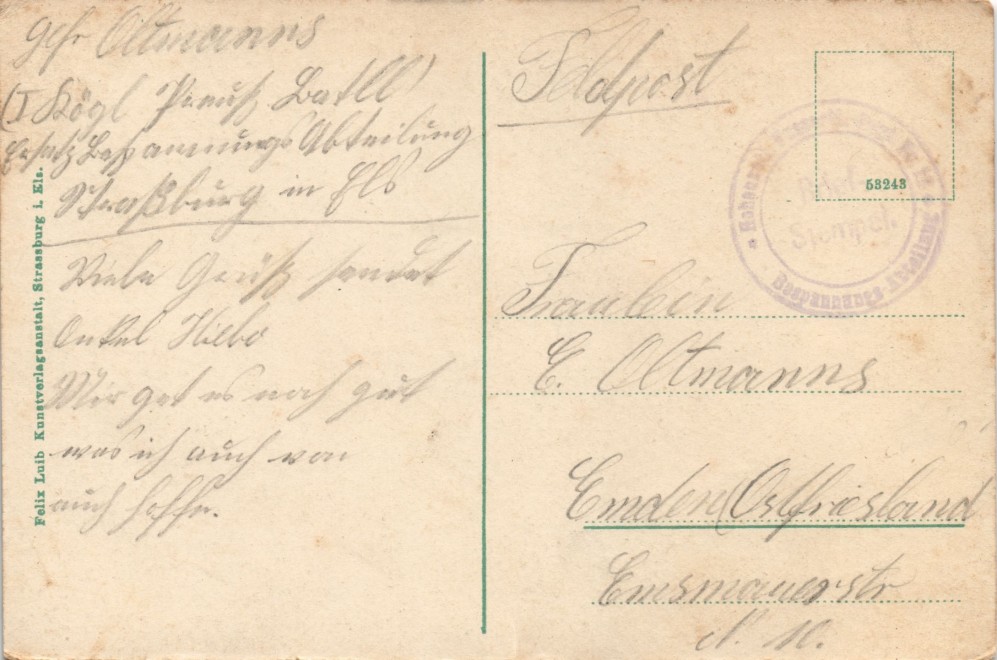 gefr Oltmanns
(I Kögl Preuß Batll)
Ersatz Bespannungs Abteilung
Straßburg in Els
Viele Grüß sendet
Onkel Hilbo
Mir get es noch gut
was ich auch von
auch hoffe.
Felix Luib Kunstverlagsanstalt, Strassburg i. Els.
Feldpost
53243
Stempel.
Bespannungs-Abteilung
Fraulein
E. Oltmanns
Emden (Ostfriesland
Emsmauerstr